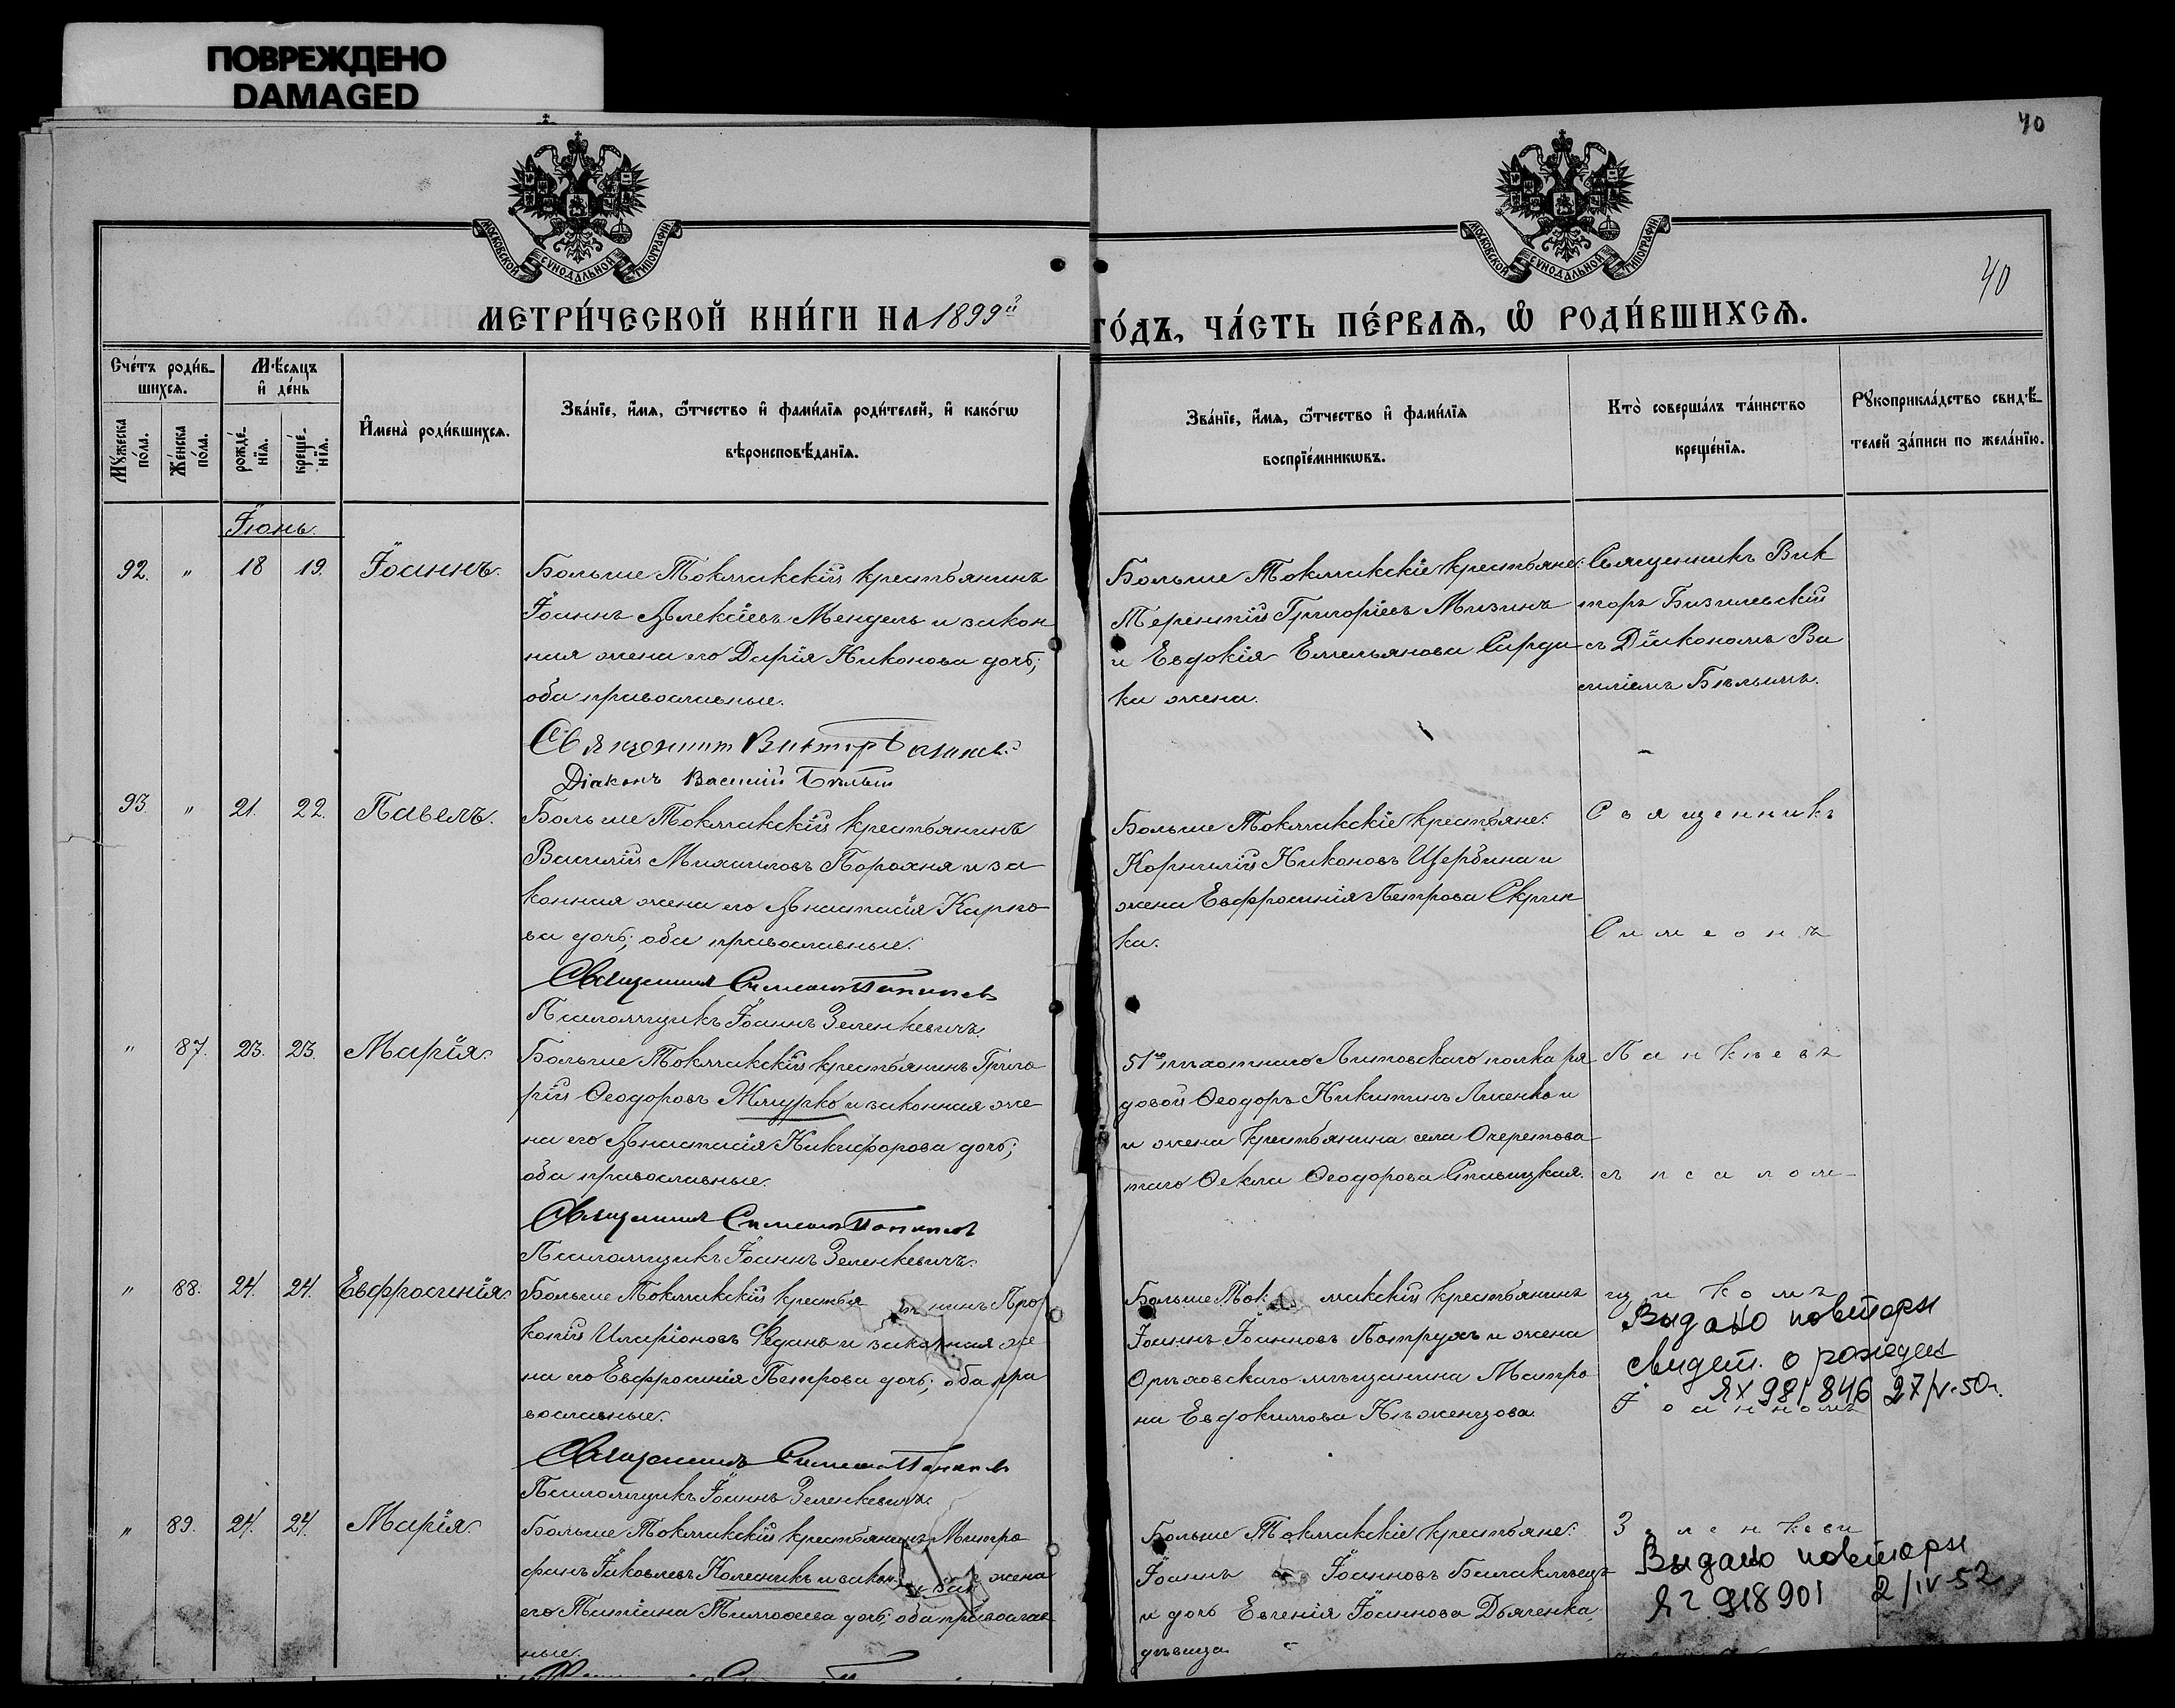 ПОВРЕЖДЕНО
DAMAGED
40
МОСКОВСКОЙ СУНОДАЛЬНОЙ ТИПОГРАФІИ
МОСКОВСКОЙ СУНОДАЛЬНОЙ ТИПОГРАФІИ
40
МЕТРИ́ЧЕСКОЙ КНИ́ГИ НА 1899й
ГО́ДЪ, ЧА́СТЬ ПЕ́РВАѦ, Ѡ҆ РОДИ́ВШИХСѦ.
Счéтъ роди́в-
шихсѧ.
Мѣ́сѧцъ
и҆ де́нь
Мꙋ́жеска
по́ла.
Же́нска
по́ла.
рожде́-
нїѧ.
креще́-
нїѧ.
И҆мена̀ роди́вшихсѧ.
Зва́нїе, и҆́мѧ, ѻ҆́тчество и҆ фами́лїѧ роди́телей, и҆ како́гѡ
вѣроисповѣ́данїѧ.
Зва́нїе, и҆́мѧ, ѻ҆́тчество и҆ фами́лїѧ
воспрїе́мникѡвъ.
Кто̀ соверша́лъ та́инство
креще́нїѧ.
Рꙋкоприкла́дство свидѣ́-
телей за́писи по жела́нїю.
Іюнь.
92. " 18 19. Іоаннъ.
Больше Токмакскій крестьянинъ
Іоаннъ Алексіевъ Мендель и закон
ная жена его Дарія Никонова дочь;
оба православные.
Священник Виктор
Діаконъ Василій Бѣлый
Больше Токмакскіе крестьяне:
Терентій Григоріевъ Мизинъ
и Евдокія Емельянова Сарда
ка жена.
Священникъ Вик
торъ Базилевскій
съ Діакономъ Ва
силіемъ Бѣлымъ.
93. " 21. 22. Павелъ.
Больше Токмакскій крестьянинъ
Василій Михаиловъ Порохня и за
конная жена его Анастасія Карпо
ва дочь; оба православные.
Священник Симеон Панкеев
Псаломщикъ Іоаннъ Зеленкевичъ.
Больше Токмакскіе крестьяне:
Корнилій Никоновъ Щербина и
жена Евфросинія Петрова Скрип
ка.
Священникъ
Симеонъ
" 87. 23. 23. Марія.
Больше Токмакскій крестьянинъ Григо
рій Ѳеодоровъ Жмурко и законная же
на его Анастасія Никифорова дочь;
оба православные.
Священник Симеон Панкеев
Псаломщикъ Іоаннъ Зеленкевичъ.
51го пѣхотнаго Литовскаго полка ря
довой Ѳеодоръ Никитинъ Лисенко и
и жена крестьянина села Очеретова
таго Ѳекла Ѳеодорова Ставицкая.
Панкеевъ
съ псалом
" 88. 24. 24. Евфросинія.
Больше Токмакскій крестья нинъ Про
копій Иларіоновъ Федань и законная же
на его Евфросинія Петрова дочь; оба пра
вославные.
Священникъ Симеон Панкеев
Псаломщикъ Іоаннъ Зеленкевичъ.
Больше Ток макскій крестьянинъ
Іоаннъ Іоанновъ Патрухъ и жена
Орѣховскаго мѣщанина Матро
на Евдокимова Нѣженцова.
щикомъ
Видано повторн
свидет. о рожден
ЯХ 981846 27/V-50г.
Іоанномъ
" 89. 24. 24. Марія.
Больше Токмакскій крестьянинъ Митро
фанъ Іаковлевъ Колесникъ и закон жена
его Татіана Тимоѳеева дочь; оба православ
ные.
Больше Токмакскіе крестьяне:
Іоаннъ Іоанновъ Балаклѣецъ
и дочь Евгенія Іоаннова Дьяченка,
дѣвица.
Зеленкеви
Видано повторн
918901 2/IV-52